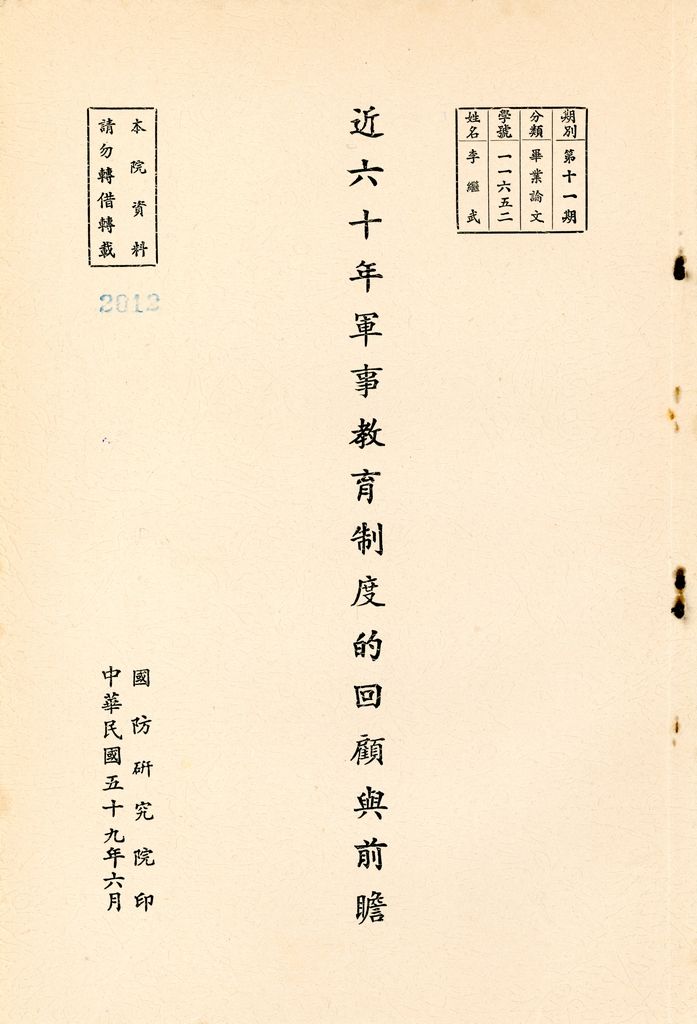 期別 第十一期
分類 畢業論文
學號 一一六五二
姓名 李繼武
近六十年軍事教育制度的回顧與前瞻
本院資料
請勿轉借轉載
2012
國防研究院印
中華民國五十九年六月